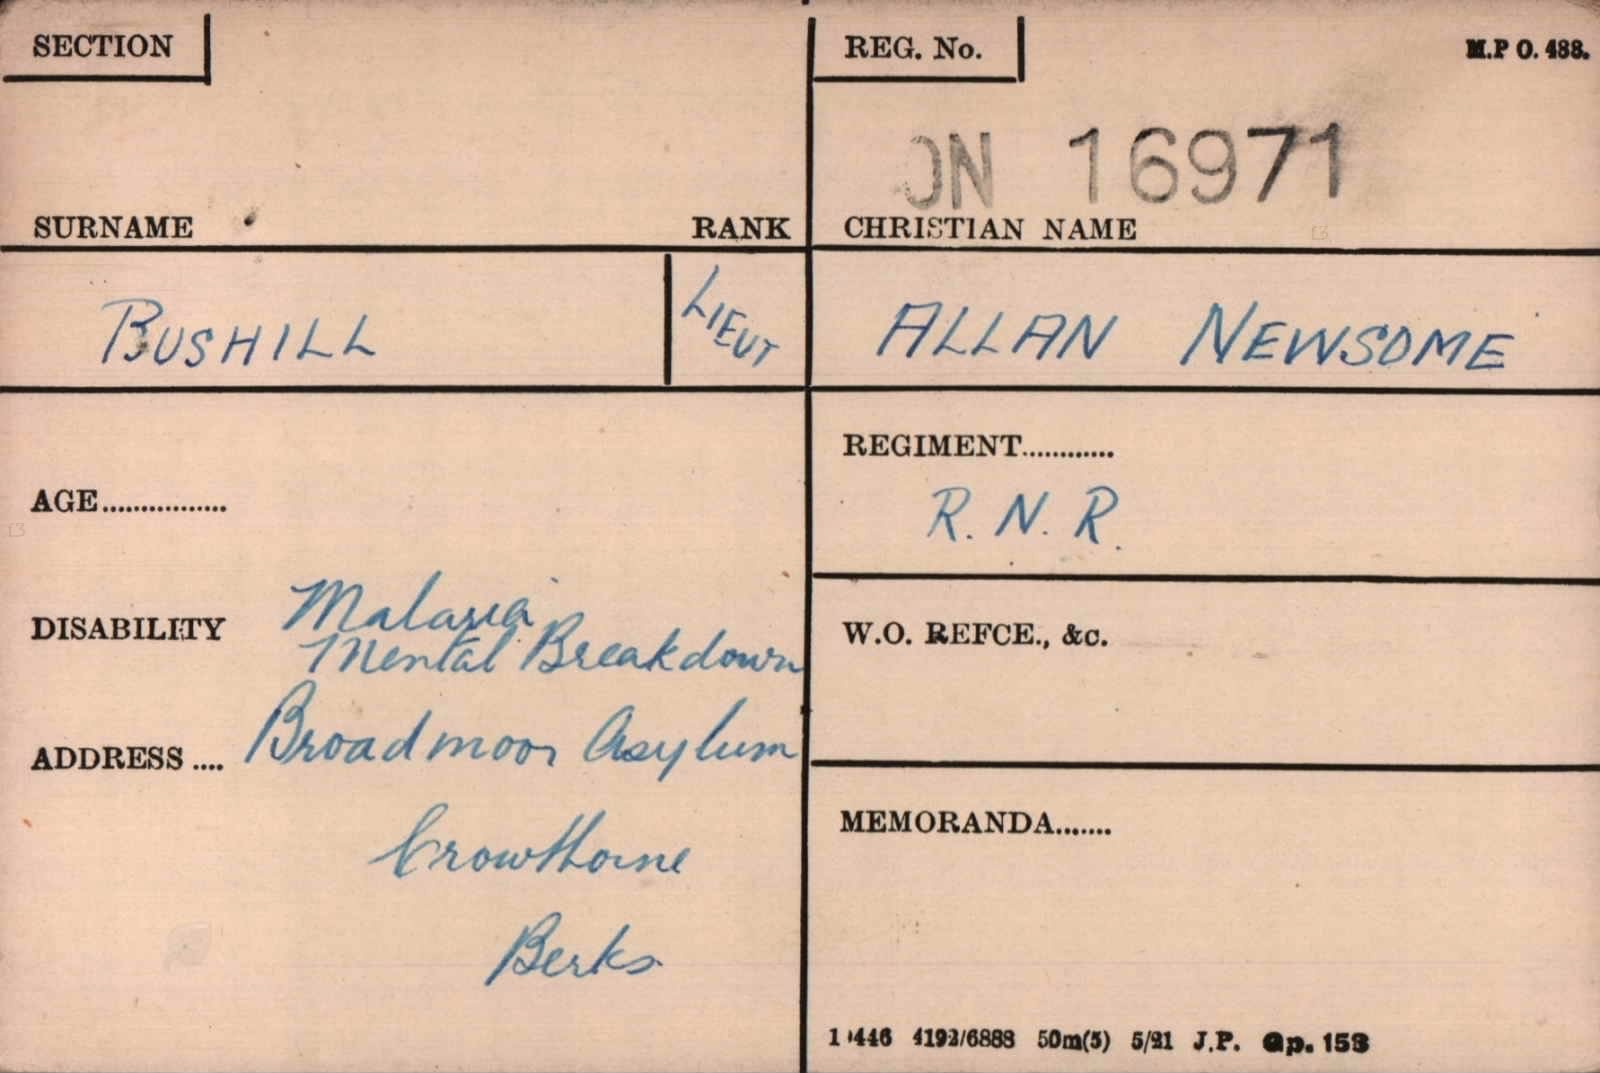 SECTION
REG. No.
M.P O. 488.
ON 16971
SURNAME
RANK
CHRISTIAN NAME
BUSHILL
LIEUT
ALLAN NEWSOME
REGIMENT............
R. N. R.
AGE................
DISABILITY
Malaria
Mental Breakdown
W.O. REFCE., &c.
ADDRESS ....
Broadmoor Asylum
Crowthorne
Berks
MEMORANDA.......
4192/6888 50m(5) 5/21 J.P. Gp. 153